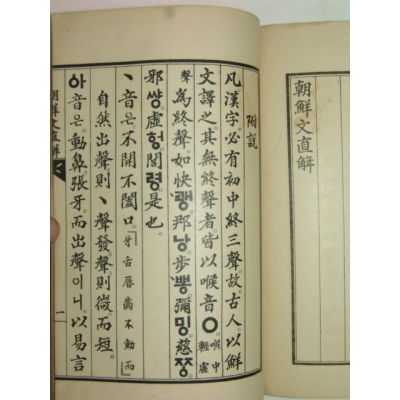 朝鮮文直解
附說
凡漢字必有初中終三聲故古人以鮮
文譯之其無終聲者皆以喉音ㅇ喉中輕虛
聲爲終聲如快괭那낭步뽕彌밍慈
邪썅虛헝閭령是也
丶音은不開不闔口牙舌唇齒不動而
自然出聲則丶聲發聲則微而短
아音은動鼻張牙而出聲이니以易言
朝鮮文直解
一